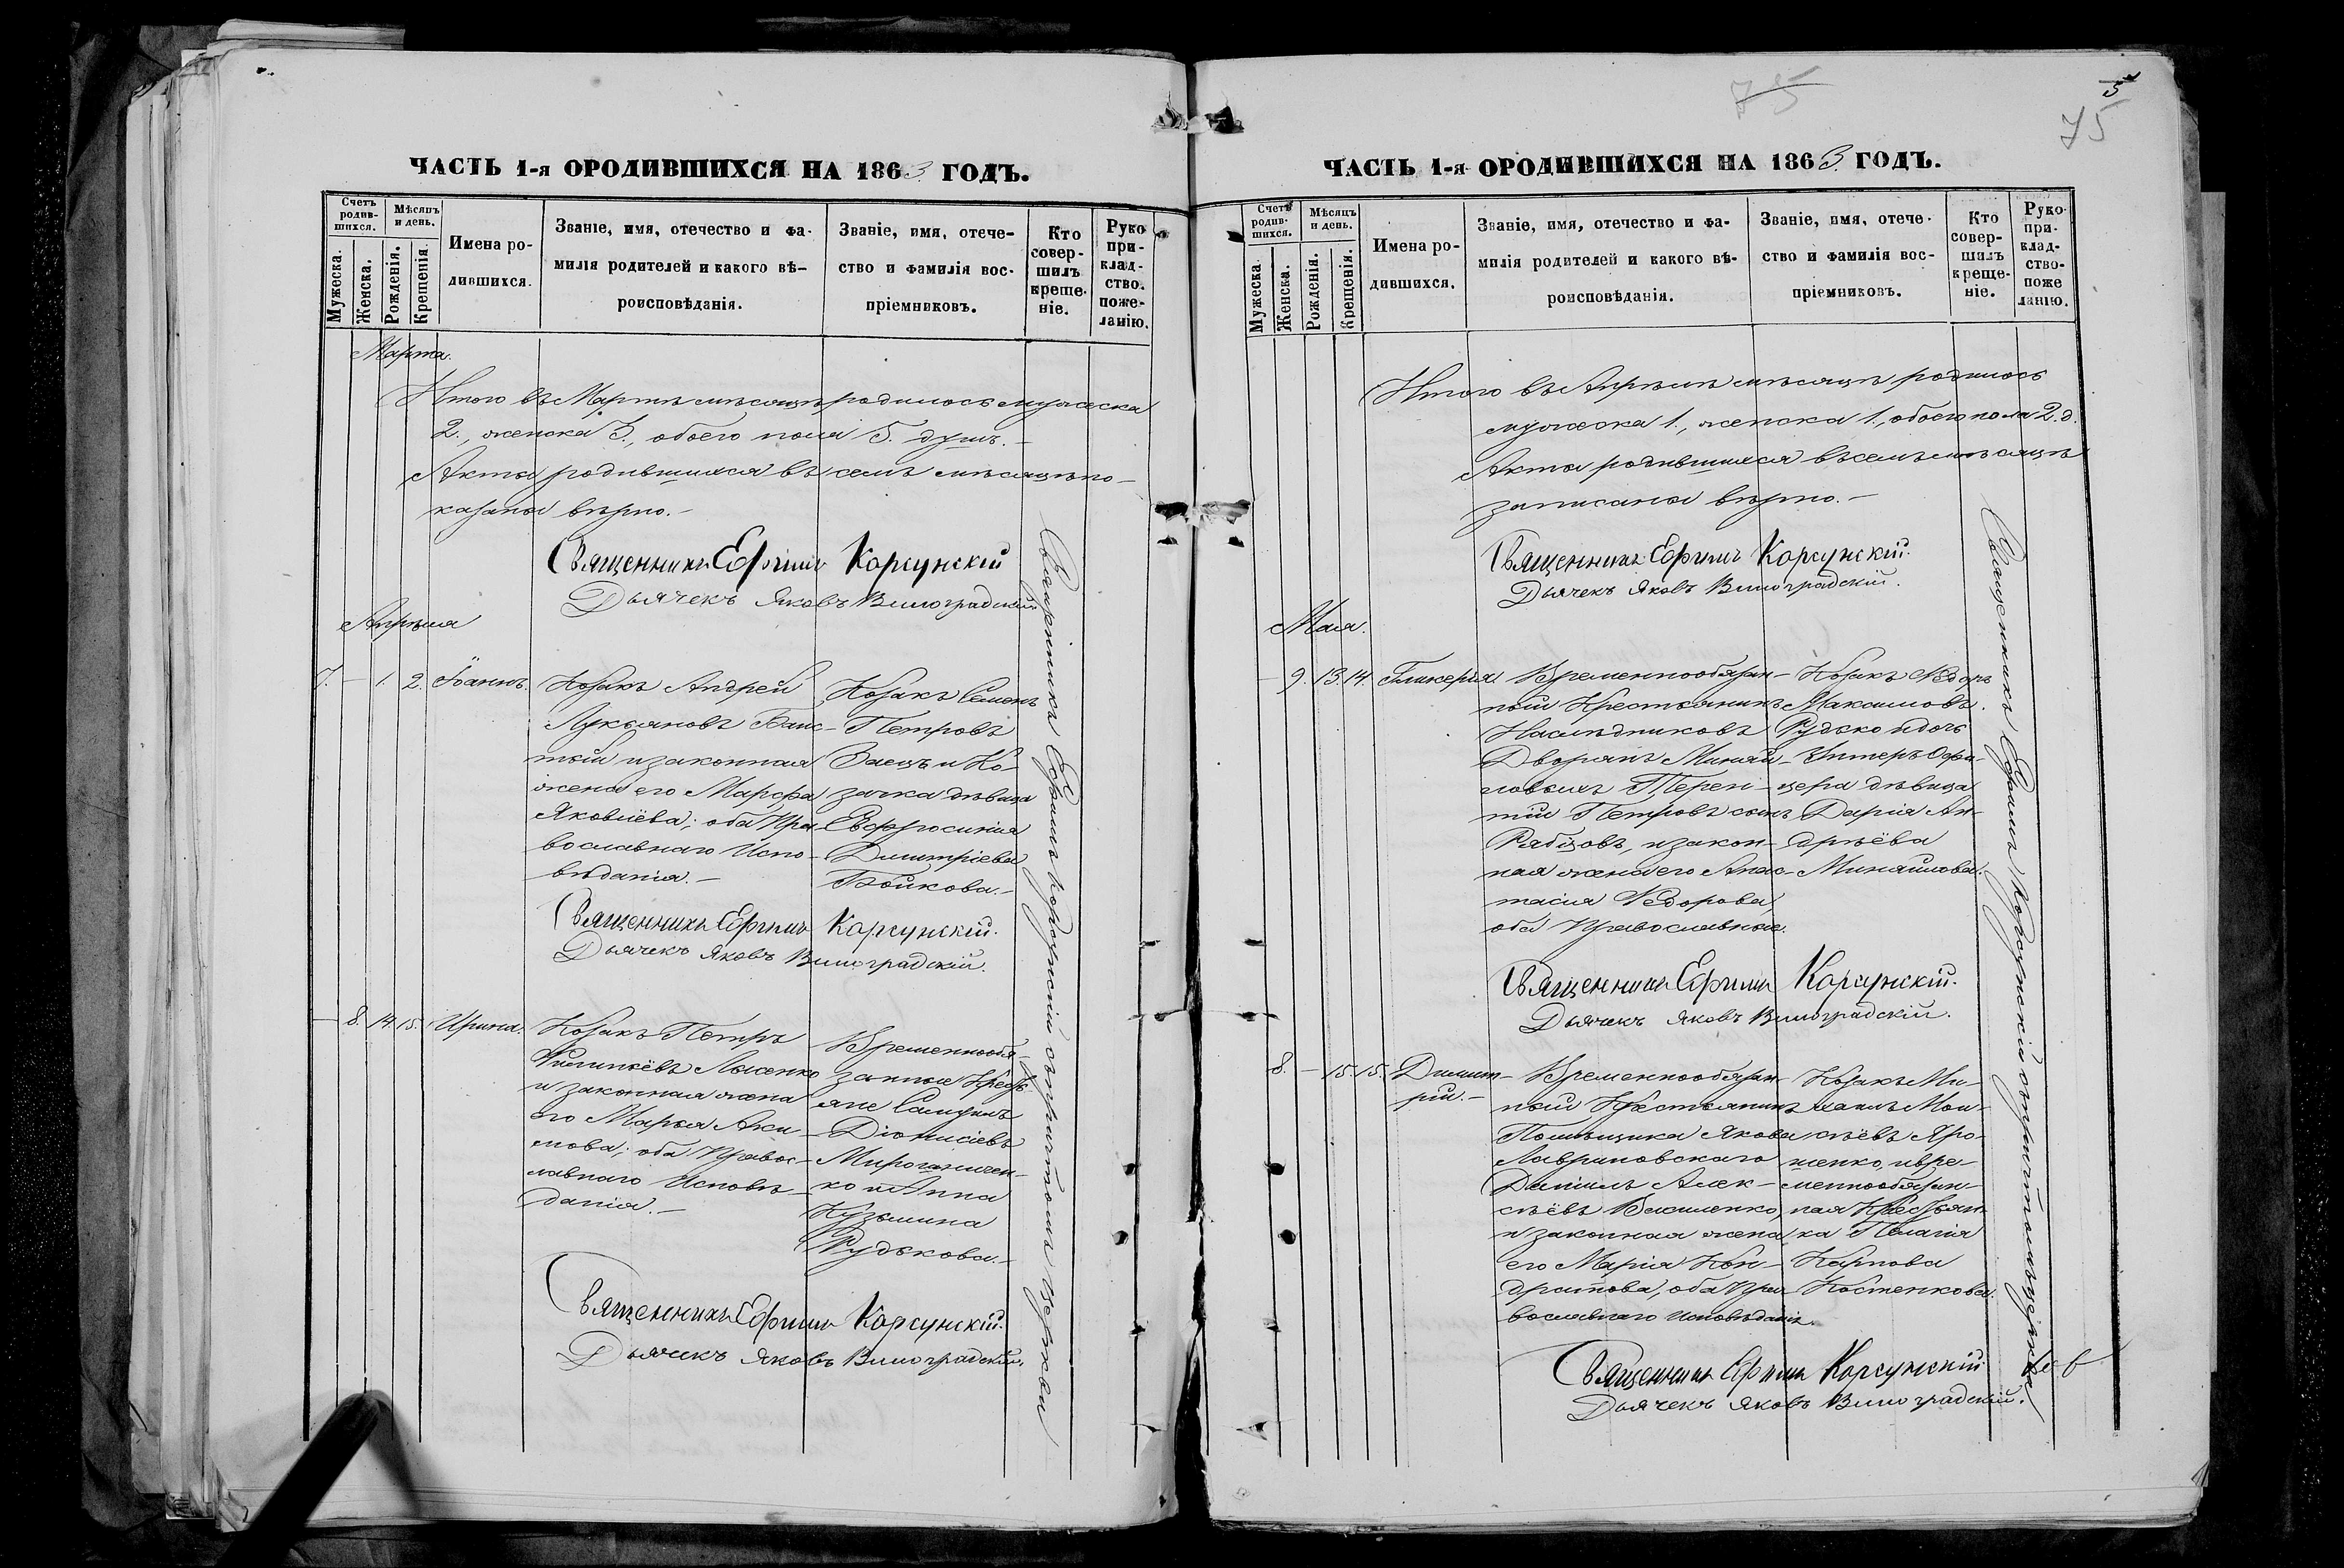 ЧАСТЬ 1-я ОРОДИВШИХСЯ НА 1863 ГОДЪ.
Счетъ родив-шихся.
Мѣсяцъ и день.
Мужеска.
Женска.
Рожденія.
Крещенія
Имена ро-
дившихся.
Званіе, имя, отечество и фа-
милія родителей и какого вѣ-
роисповѣданія.
Званіе, имя, отече-
ство и фамилія вос-
пріемниковъ.
Кто
совер-
шилъ
креще-
ніе.
Руко
при-
клад-
ство.
поже-
ланію.
Марта.
Итого въ Мартѣ мѣсяцѣ родилось мужеска
2., женска 3., обоего пола 5. душъ.-
Акты родившихся въ семъ мѣсяцѣ по-
казаны вѣрно.-
Священникъ Ефимъ Корсунскій
Дьячекъ Яковъ Виноградскій
Апрѣля
7. — 1. 2. Іоаннъ.
Козакъ Андрей
Лукьяновъ
тый и законная
жена его Марѳа
Яковлёва; оба Пра-
вославнаго Испо-
вѣданія.-
Козакъ Семенъ
Петровъ
Заецъ и Ко-
зачка дѣвица
Евфросинія
Димитріева
Бойкова.-
Священникъ Ефимъ Корсунскій.
Дьячекъ Яковъ Виноградскій.
— 8. 14. 15. Ирина.
Козакъ Петръ
Филипьёвъ Лысенко
и законная жена
его Марья Аки-
мова; оба Правос-
лавнаго Исповѣ-
данія.-
Временнообя-
занные Кресть-
яне Самуилъ
Діонисіевъ
Мирошничен-
ко и Анна
Кузьмина
Рудькова.-
Священникъ Ефимъ Корсунскій.
Дьячекъ Яковъ Виноградскій.
Священникъ Ефимъ Корсунскій съ причтомъ церкви
75
75
ЧАСТЬ 1-я ОРОДИВШИХСЯ НА 1863. ГОДЪ.
Счетъ родив-шихся.
Мѣсяцъ и день.
Мужеска.
Женска.
Рожденія.
Крещенія.
Имена ро-
дившихся.
Званіе, имя, отечество и фа-
милія родителей и какого вѣ-
роисповѣданія.
Званіе, имя, отече-
ство и фамилія вос-
пріемниковъ.
Кто
совер-
шилъ
креще-
ніе.
Руко-
при-
клад-
ство-
поже
ланію.
Итого въ Апрѣлѣ мѣсяцѣ родилось
мужеска 1., женска 1., обоего пола 2. д.
Акты родившихся въ семъ мѣсяцѣ
записаны вѣрно.-
Священникъ Ефимъ Корсунскій.
Дьячекъ Яковъ Виноградскій.
Мая.
— 9. 13. 14. Гликерія.
Временнообязан-
ный Крестьянинъ
Наслѣдниковъ
Дворянъ Миняй-
ловыхъ Терен-
тій Петровъ сынъ
Рябцовъ, и закон-
ная жена его Анас-
тасія Ѳедорова,
оба Православные.
Козакъ Ѳедоръ
Максимовъ
Рудько и дочь
Унтеръ Офи-
цера дѣвица
Дарія Ан-
дрѣёва
Миняйлова.
Священникъ Ефимъ Корсунскій.
Дьячекъ Яковъ Виноградскій.
8. — 15. 15. Димит-
рій.-
Временнообязан-
ный Крестьянинъ
Помѣщика Якова
Лавриновскаго
Даніилъ Алек-
сѣёвъ Василенко,
и законная жена
его Марія Кон-
дратова, оба Пра-
вославнаго исповѣданія.
Козакъ Ми-
хаилъ Мои-
сѣёвъ Яро-
шенко, и вре-
меннообязан-
ная Крестьян-
ка Пелагія
Карпова
Костенкова.
Священникъ Ефимъ Корсунскій
Дьячекъ Яковъ Виноградскій.
Священникъ Ефимъ Корсунскій съ причтомъ церкви